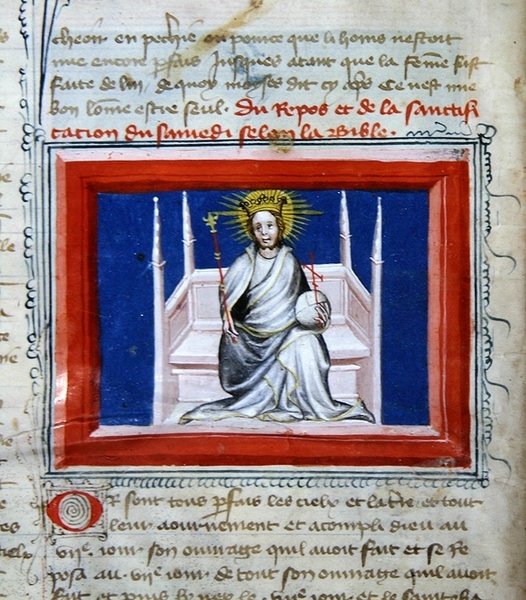 cheoir en pechie ou pource que li homs nestoit
mie encore pfais jusques atant que la feme fust
faite de lui de quoy moyses dit cy aps Ce nest mie
bon lome estre seul. Du Repos et de la sanctifi
cation du samedi selon la Bible.
OR sont tous pfais les cielx et la tre et tout
leur aournement et acompli dieu au
viie iour son ouurage quil auoit fait et se Re
posa au viie iour de tout son ouurage quil auoit
fait et puis le viie iour et le